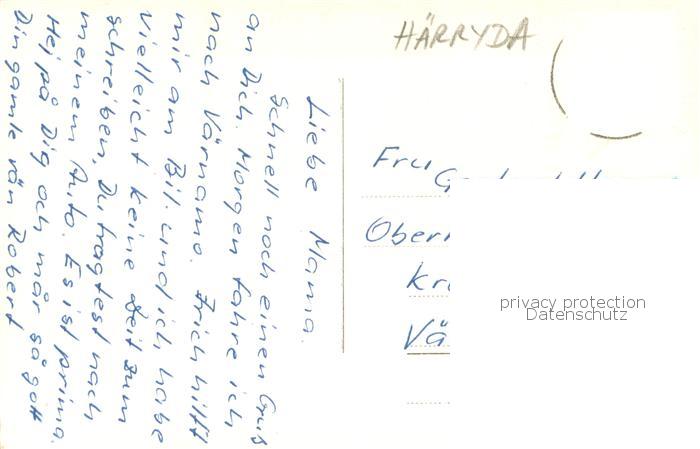 HÄRRYDA
Liebe Mama.
Schnell noch einen Gruß
an Dich. Morgen fahre ich
nach Värnamo. Erich hilft
mir am Bil. und ich habe
vielleicht keine Zeit zum
schreiben, Du fragtest nach
meinem Auto. Es ist prima.
Hej på Dig och mår så gott
Din gamle vän Robert
Fru
Ober
Kr
Vä
privacy protection
Datenschutz